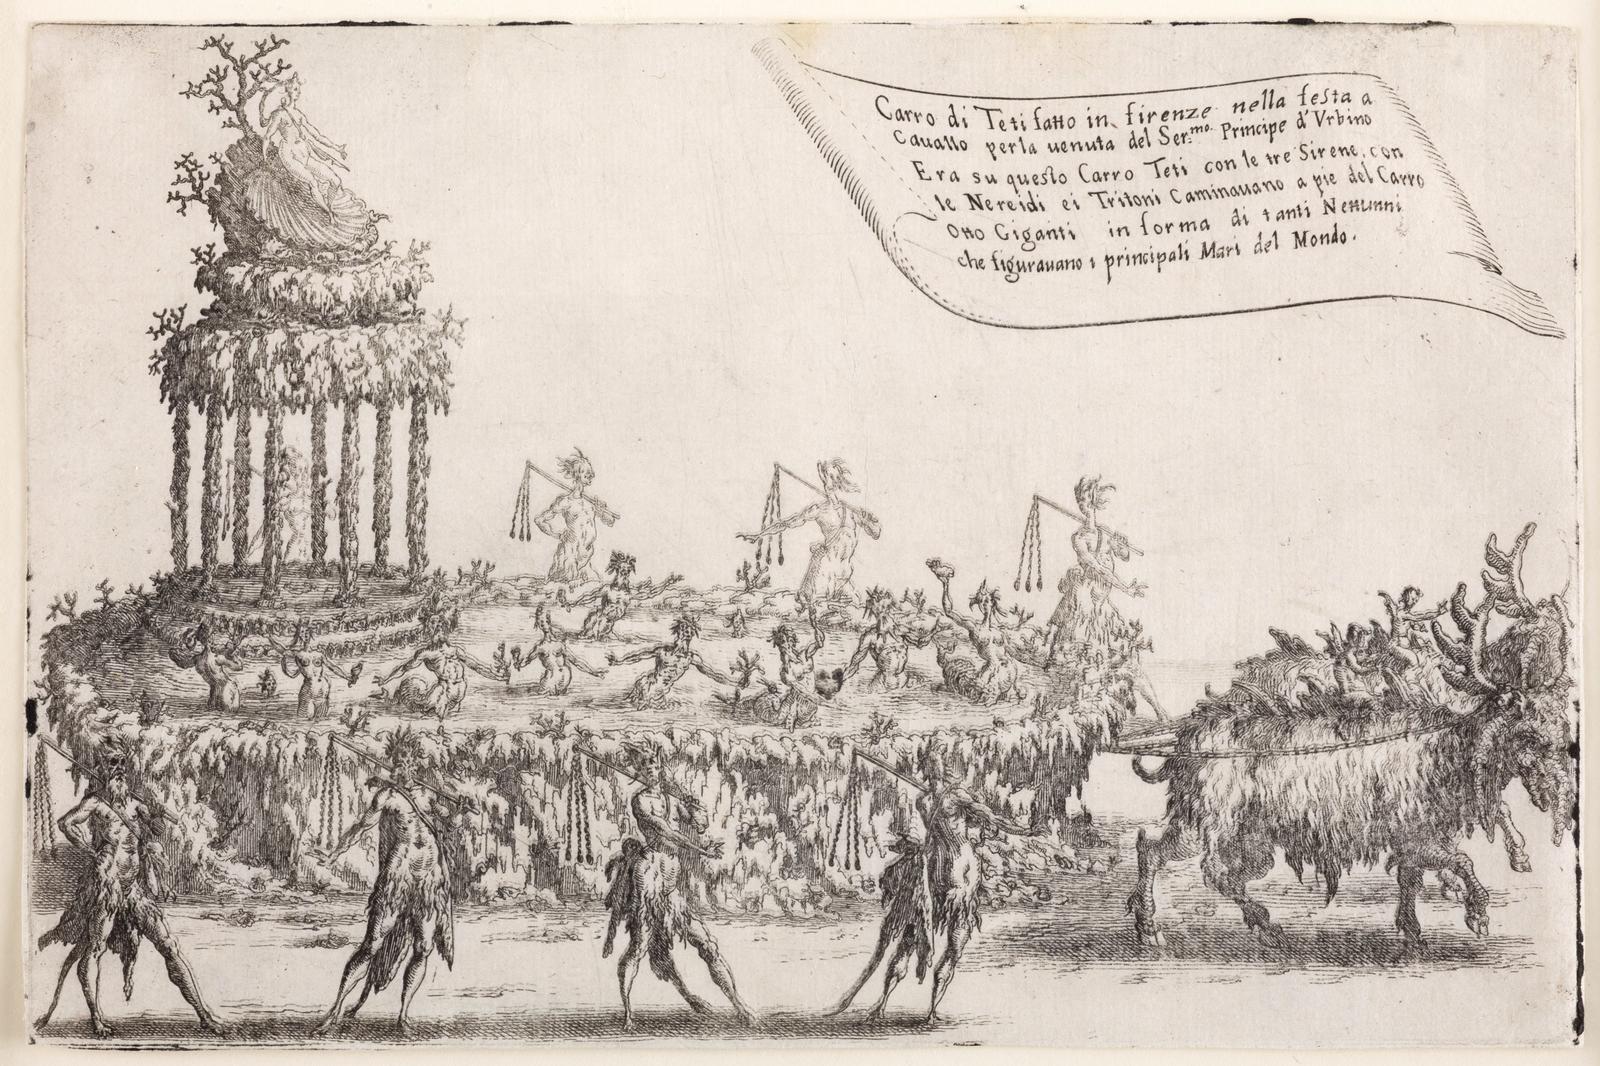 Carro di Teti fatto in firenze nella festa a
Cauallo per la uenuta del Ser.mo Principe d'Vrbino
Era su questo Carro Teti con le tre Sirene, con
le Nereidi ei Tritoni Caminauano a pie del Carro
Otto Giganti in forma di tanti Nettunni
che figurauano i principali Mari del Mondo.